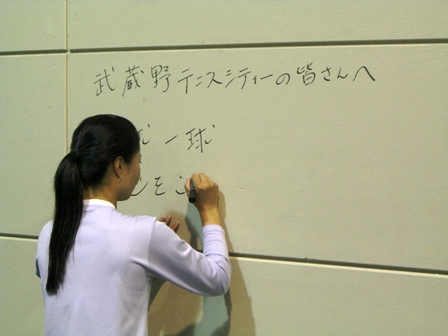 武蔵野テニスシティーの皆さんへ
一球
をこ